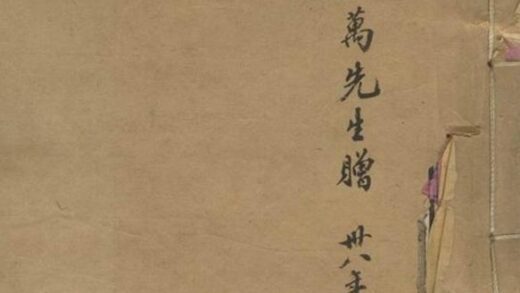 萬先生贈 卅八年